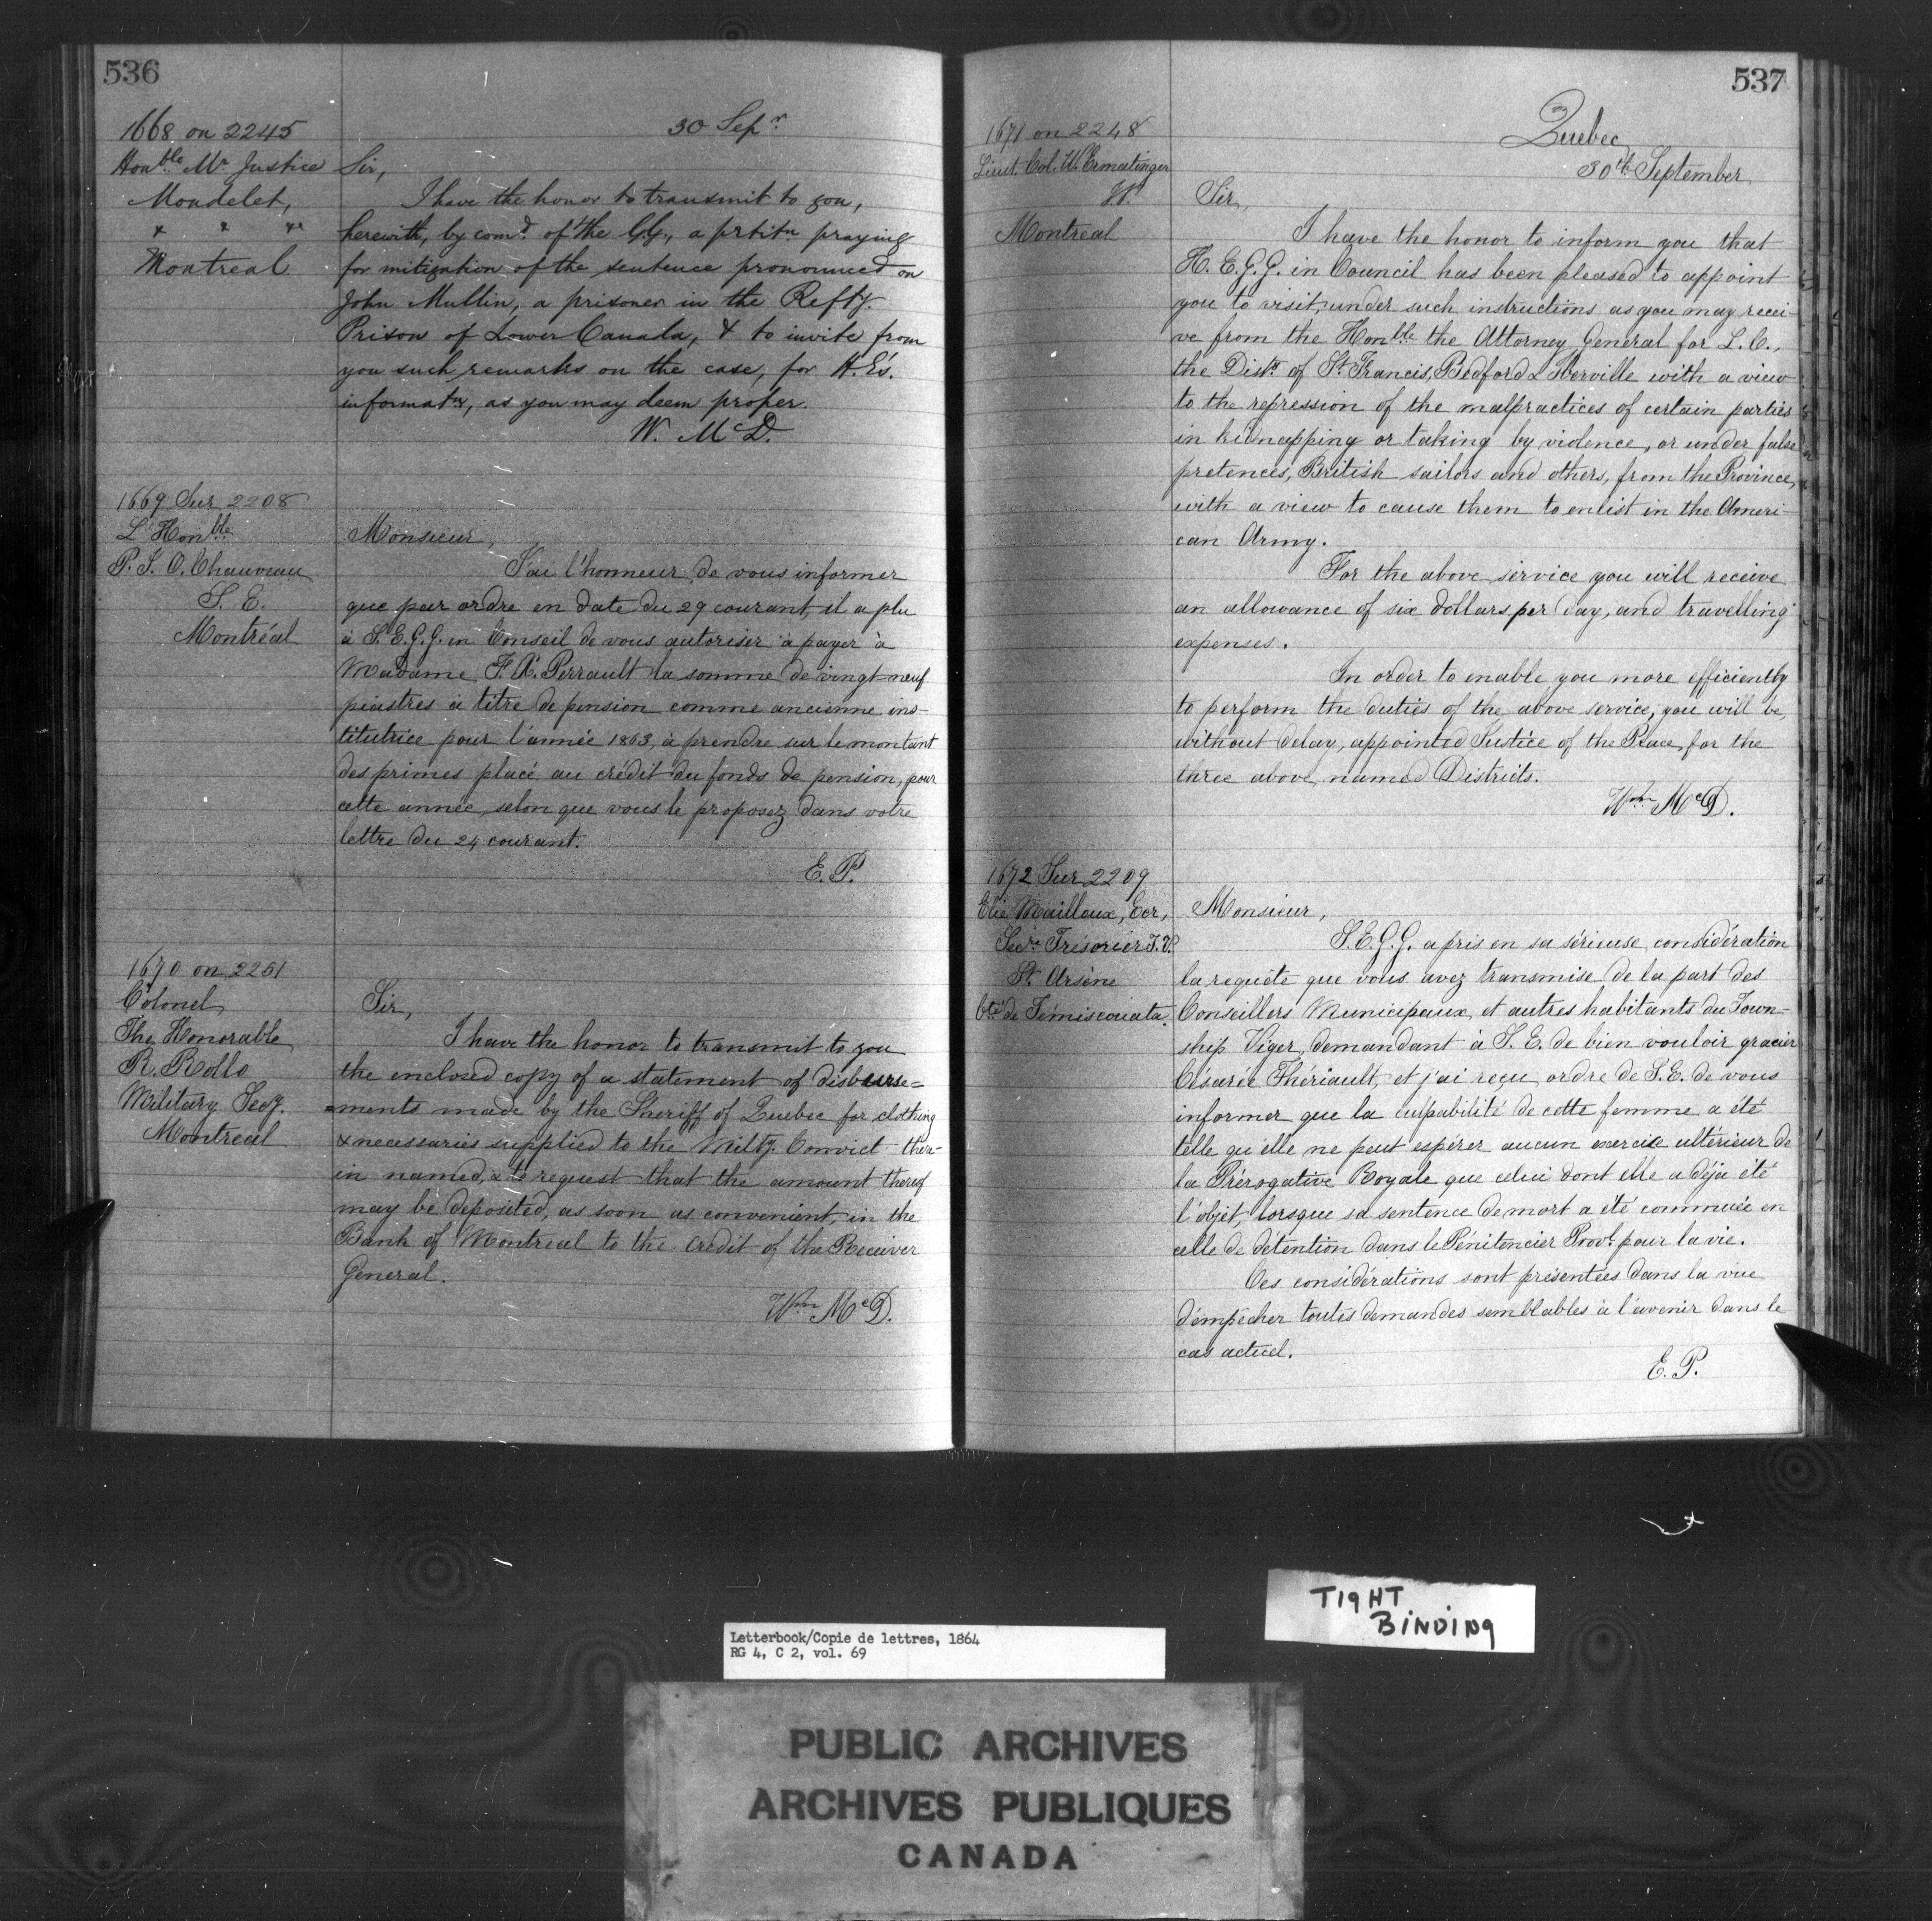 536
1668 on 2245
Honble Mr Justice
Mondelet,
& & &c
Montreal
30 Sepr
Sir,
I have the honor to transmit to you,
herewith, by comd. of the G.G., a petitn praying
for mitigation of the sentence pronounced on
John Mullin, a prisoner in the Refty.
Prison of Lower Canada, & to invite from
you such remarks on the case, for H.E's.
informatn, as you may deem proper.
W. McD.
1669 Sur 2208
L'Honble
P. J. O. Chauveau
S. E.
Montréal
Monsieur,
J'ai l'honneur de vous informer
que par ordre en date du 29 courant, il a plu
à S.E.G.G. en Conseil de vous autoriser à payer à
Madame F. X. Perrault la somme de vingt-neuf
piastres à titre de pension comme ancienne ins-
titutrice pour l'année 1863, à prendre sur le montant
des primes placé au crédit du fonds de pension, pour
cette année, selon que vous le proposez dans votre
lettre du 24 courant.
E. P.
1670 on 2251
Colonel
The Honorable
R. Rollo
Military Secy.
Montreal
Sir,
I have the honor to transmit to you
the enclosed copy of a statement of disburse=
=ments made by the Sheriff of Quebec for clothing
& necessaries supplied to the Milty. Convict there-
in named, & to request that the amount thereof
may be deposited, as soon as convenient, in the
Bank of Montreal to the credit of the Receiver
General.
Wm McD.
537
1671 on 2248
Lieut. Col. W. Ermatinger
Montreal
Quebec
30th September
Sir,
I have the honor to inform you that
H. E. G. G. in Council has been pleased to appoint
you to visit, under such instructions as you may recei-
ve from the Honble the Attorney General for L. C.,
the Distts of St Francis, Bedford & Iberville with a view
to the repression of the malpractices of certain parties
in kidnapping or taking by violence, or under false
pretences, British sailors and others, from the Province,
with a view to cause them to enlist in the Ameri-
can Army.
For the above service you will receive
an allowance of six dollars per day, and travelling
expenses.
In order to enable you more efficiently
to perform the duties of the above service, you will be,
without delay, appointed Justice of the Peace, for the
three above named Districts.
Wm McD.
1672 Sur 2209
Elie Mailloux, Ecr,
Secre Trésorier T.V.
St Arsène
Cté de Témiscouata
Monsieur,
S.E.G.G. a pris en sa sérieuse considération
la requête que vous avez transmise de la part des
Conseillers Municipaux et autres habitants du Town-
ship Viger, demandant à S. E. de bien vouloir gracier
Césarée Thériault, et j'ai reçu ordre de S.E. de vous
informer que la culpabilité de cette femme a été
telle qu'elle ne peut espérer aucun exercice ultérieur de
la Prérogative Royale que celui dont elle a déjà été
l'objet, lorsque sa sentence de mort a été commuée en
celle de détention dans le Pénitencier Provl. pour la vie.
Ces considérations sont présentées dans la vue
d'empêcher toutes demandes semblables à l'avenir dans le
cas actuel.
E. P.
TIGHT
BINDING
Letterbook/Copie de lettres, 1864
RG 4, C 2, vol. 69
PUBLIC ARCHIVES
ARCHIVES PUBLIQUES
CANADA